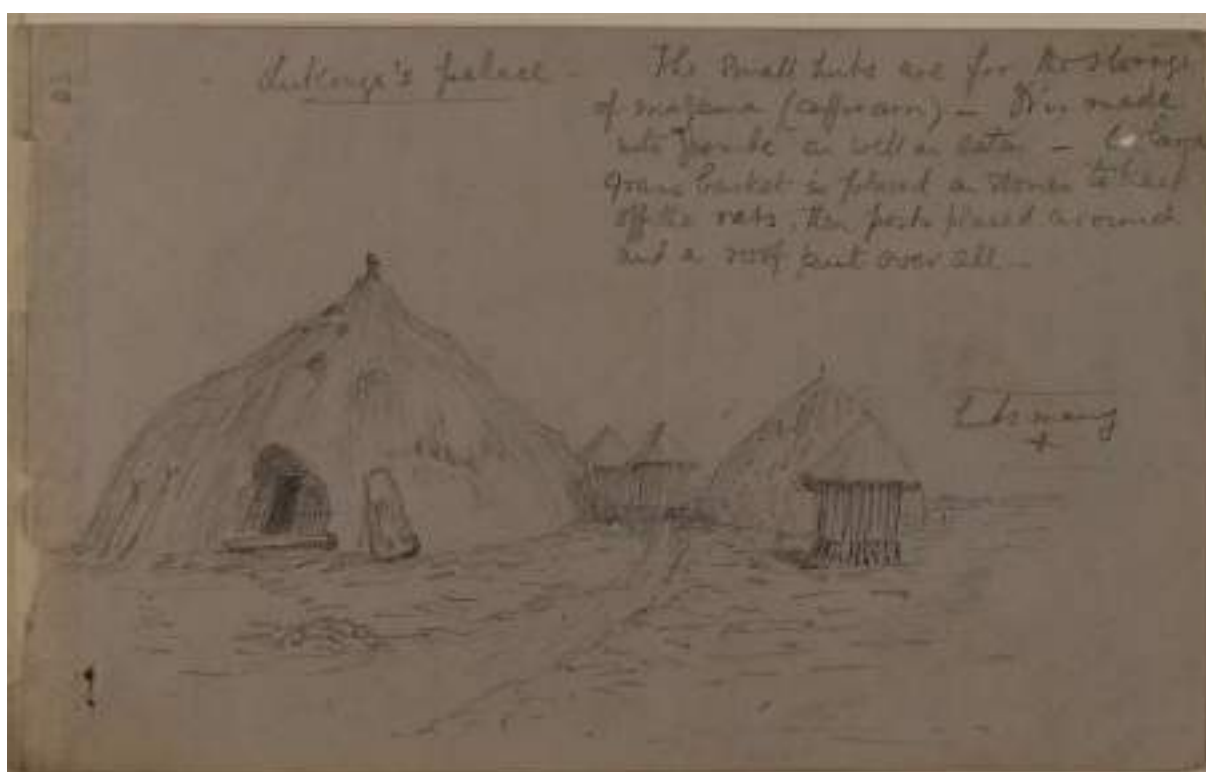 Lukonge's palace -
The small huts are for the storage
of matama (caffrecorn) - It is made
into pombe as well as eaten - A large
grass basket is placed on stones to keep
off the rats, then posts placed around
and a roof put over all -